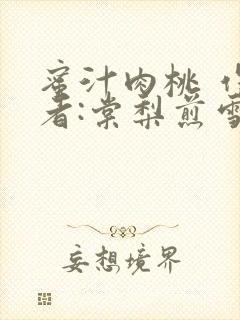 蜜汁肉桃
者:棠梨煎雪
妄想境界